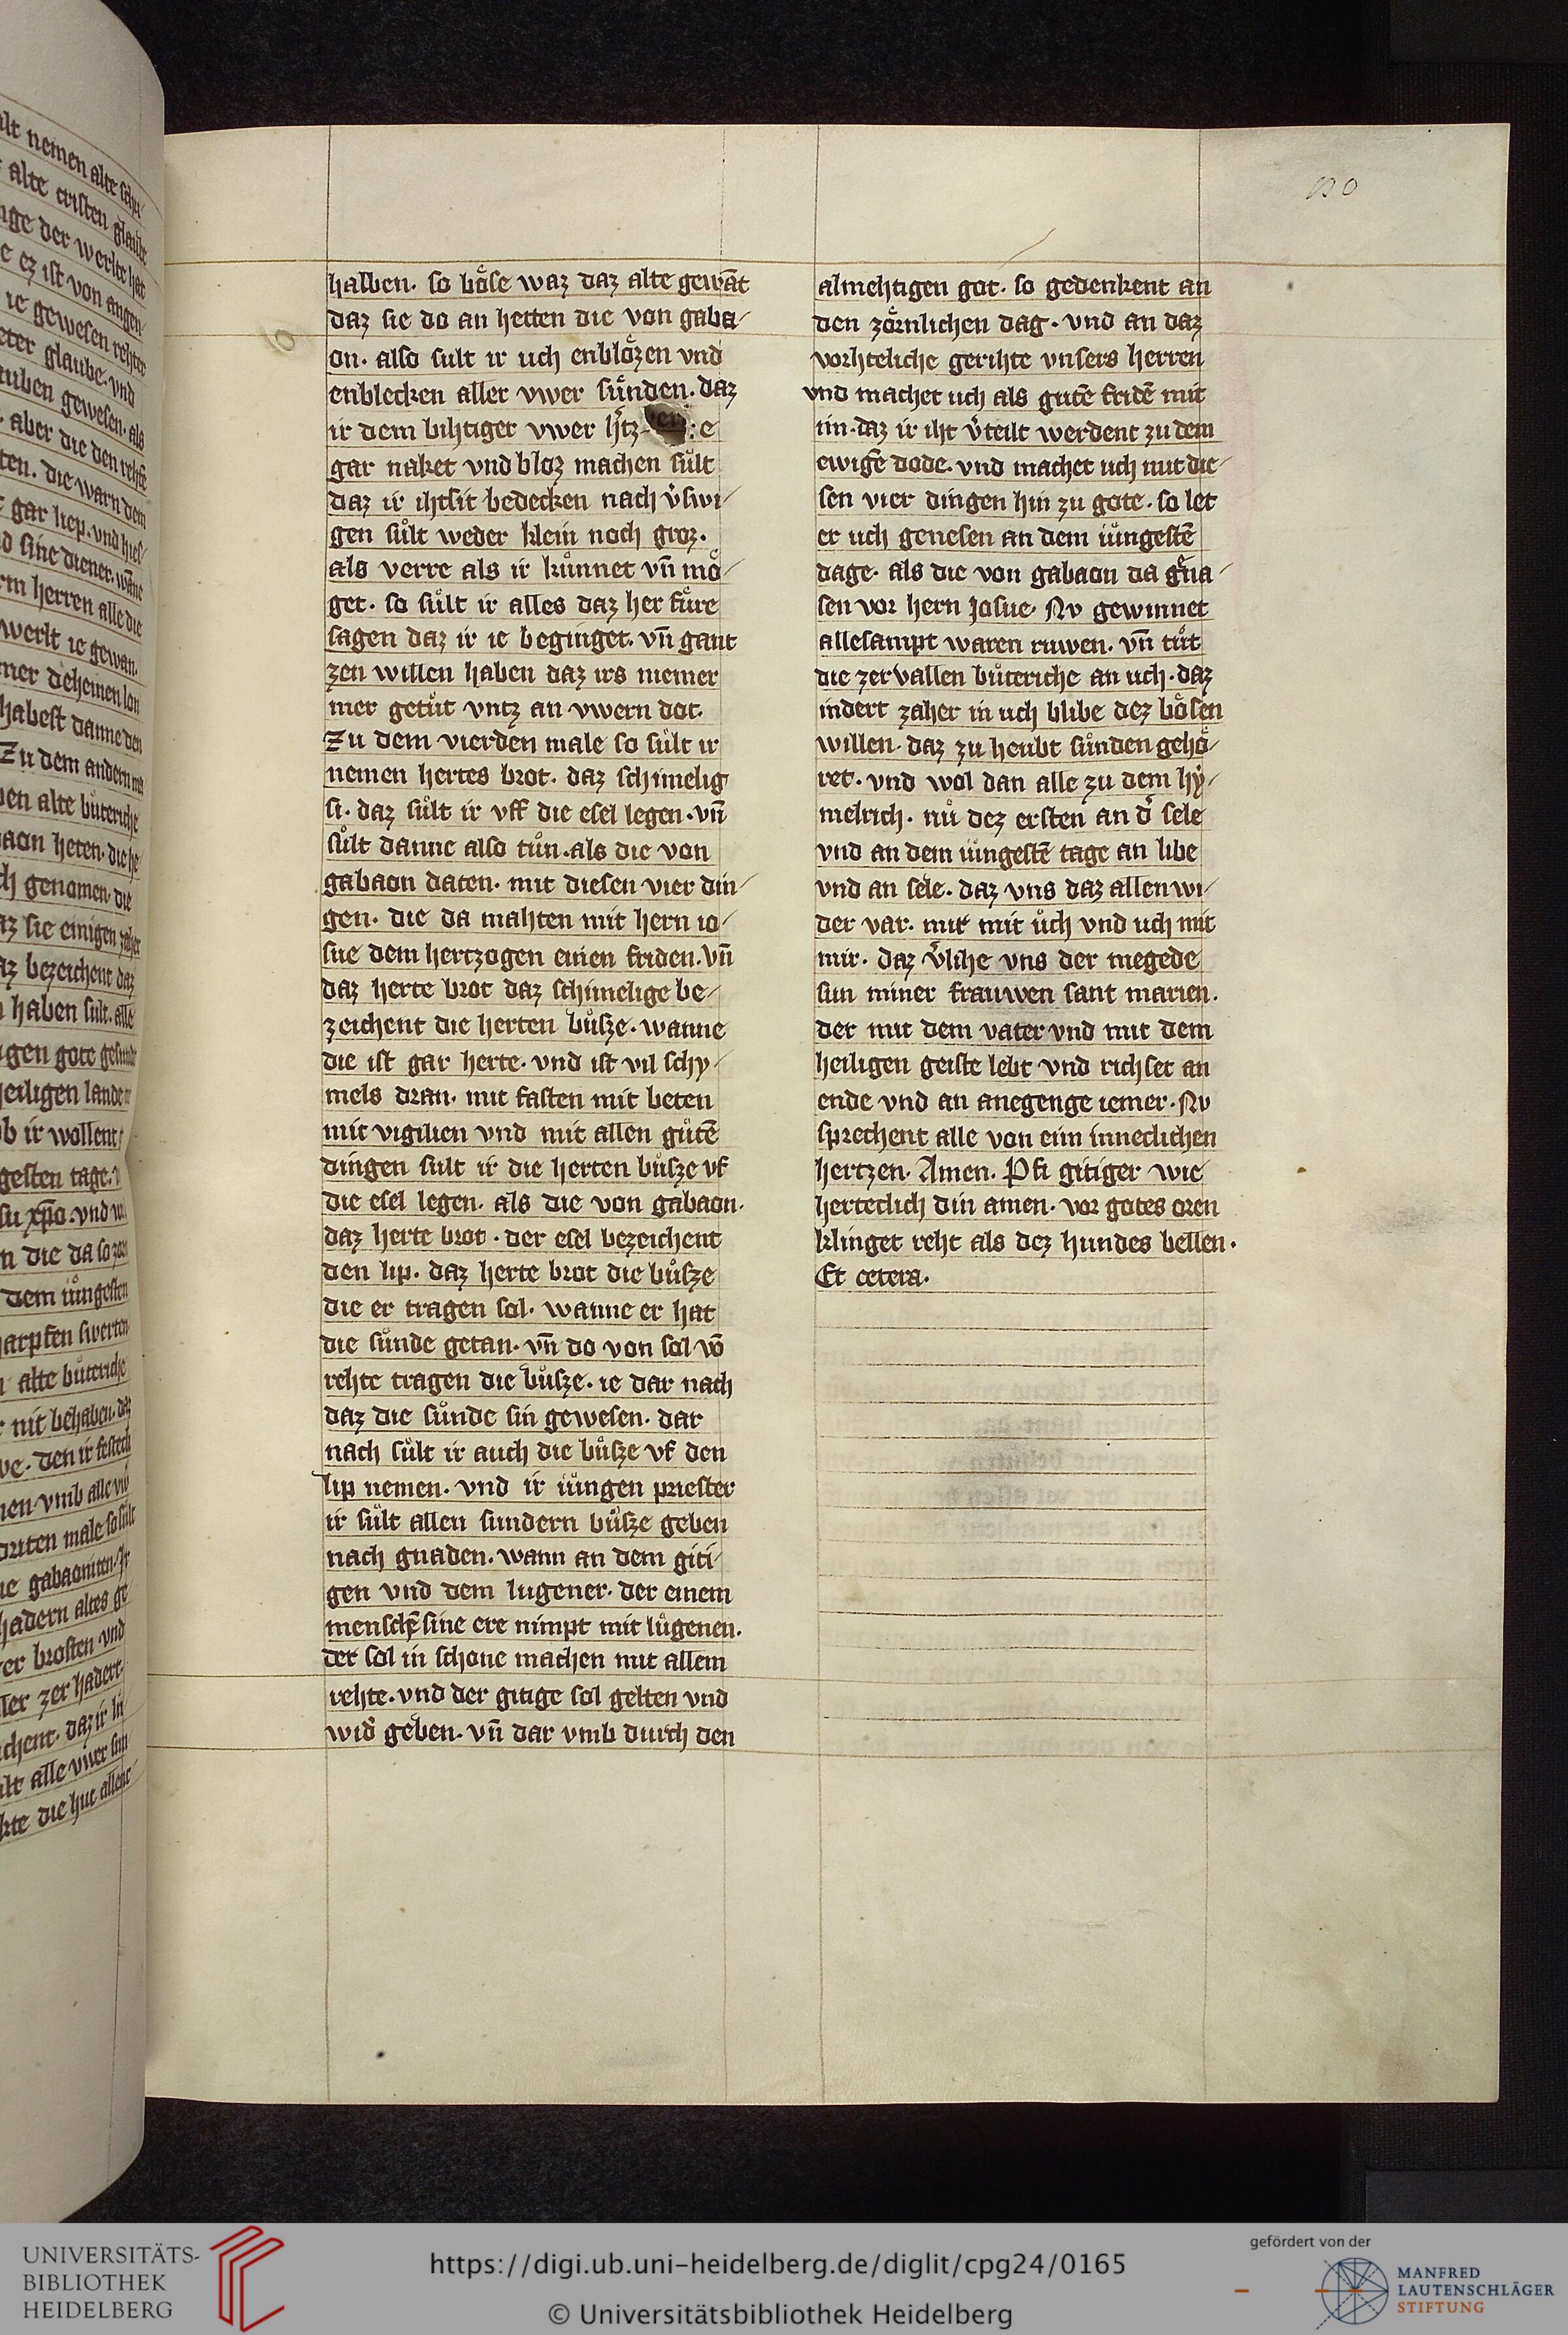 130
halben. so boͤse waz daz alte gewāt
daz sie do an hetten die von gaba-
on. also sult ir uch enbloͤzen vnd
enblecken aller vwer suͤnden. daz
ir dem bihtiger vwer
gar naket vnd bloz machen suͤlt
daz ir ihtsit bedecken nach v͛swi-
gen suͤlt weder klein noch groz.
als verre als ir kuͤnnet vn̄ moͤ-
get. so suͤlt ir alles daz her fuͤre
sagen daz ir ie beginget. vn̄ gant
zen willen haben daz irs niemer
mer getuͤt vntz an vwern dot.
Zu dem vierden male so suͤlt ir
nemen hertes brot. daz schimelig
si. daz suͤlt ir vff die esel legen. vn̄
suͤlt danne also tuͦn. als die von
gabaon daten. mit diesen vier din-
gen. die da mahten mit hern io-
sue dem hertzogen einen friden. vn̄
daz herte brot daz schimelige be-
zeichent die herten buͦsze. wanne
die ist gar herte. vnd ist vil schy-
mels dran. mit fasten mit beten
mit vigilien vnd mit allen guͤtē
dingen sult ir die herten buͦsze vf
die esel legen. als die von gabaon.
daz herte brot. der esel bezeichent
den lip. daz herte brot die buͦsze
die er tragen sol. wanne er hat
die suͤnde getan. vn̄ do von sol vō
rehte tragen die buͦsze. ie dar nach
daz die suͤnde sin gewesen. dar
nach suͤlt ir auch die buͦsze vf den
lip nemen. vnd ir iuͤngen priester
ir suͤlt allen sundern buͦsze geben
nach gnaden. wann an dem giti-
gen vnd dem lugener. der einem
menschē sine ere nimpt mit luͤgenen.
der sol in schone machen mit allem
rehte. vnd der gitige sol gelten vnd
wid͛ geben. vn̄ dar vmb durch den
almehtigen got. so gedenkent an
den zoͤrnlichen dag. vnd an daz
vorhteliche gerihte vnsers herren
vnd machet uch als gutē fridē mit
im. daz ir iht v͛teilt werdent zu dem
ewigē dode. vnd machet uch mit die-
sen vier dingen hin zu gote. so let
er uch genesen an dem iuͤngestē
dage. als die von gabaon da g͛na-
sen vor hern Josue. Nv gewinnet
allesampt waren ruwen. vn̄ tuͦt
die zervallen buͤteriche an uch. daz
indert zaher in uch blibe dez boͤsen
willen. daz zu heubt suͤnden gehoͤ-
ret. vnd wol dan alle zu dem hy-
melrich. nuͦ dez ersten an d͛ sele
vnd an dem iuͤngestē tage an libe
vnd an sele. daz vns daz allen wi-
der var. mir mit uͤch vnd uch mit
mir. daz v͛lihe vns der megede
sun miner frauwen sant marien.
der mit dem vater vnd mit dem
heiligen geiste lebt vnd richset an
ende vnd an anegenge iemer. Nv
sprechent alle von eim inneclichen
hertzen. Amen. Pfi gitiger wie
herteclich din amen. vor gotes oren
klinget reht als dez hundes bellen.
Et cetera.
UNIVERSITÄTS-
BIBLIOTHEK
HEIDELBERG
https://digi.ub.uni-heidelberg.de/diglit/cpg24/0165
© Universitätsbibliothek Heidelberg
gefördert von der
MANFRED
LAUTENSCHLÄGER
STIFTUNG